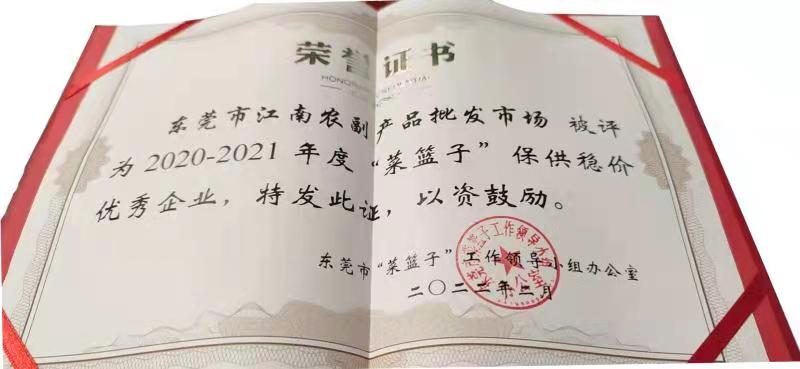 荣誉证书
东莞市江南农副产品批发市场 被评
为2020-2021年度“菜篮子”保供稳价
优秀企业，特发此证，以资鼓励。
东莞市“菜篮子”工作领导小组办公室
二〇二二年二月